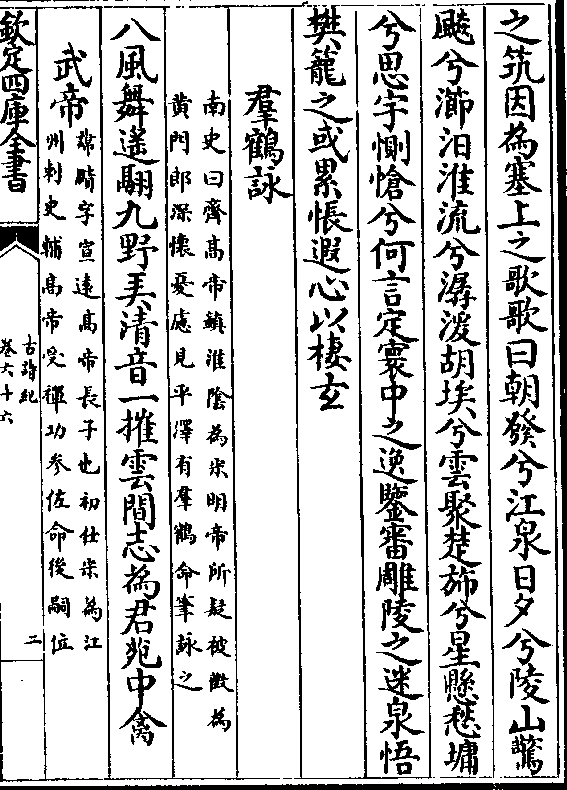 之筑因為塞上之歌歌曰朝發兮江泉日夕兮陵山驚
飈兮瀄汩淮流兮潺湲胡埃兮雲聚楚斾兮星懸愁墉
兮思宇惻愴兮何言定寰中之逸鑒審雕陵之迷泉悟
樊籠之或累悵遐心以棲玄
羣鶴詠
南史曰齊高帝鎮淮陰為宋明帝所疑被徴為
黄門郎深懷憂慮見平澤有羣鶴命筆詠之
八風舞遙翮九野弄清音一摧雲間志為君苑中禽
武帝
諱賾字宣逺髙帝長子也初仕宋為江
州刺史輔髙帝受禪功參佐命後嗣位
欽定四庫全書
古詩紀
卷六十六
二